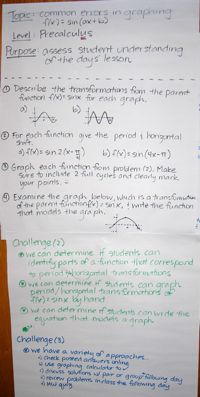 Topic: common errors in graphing
f(x) = sin(ax+b)
Level: Precalculus
Purpose: assess student understanding
of the days lesson
① Describe the transformations from the parent
function f(x) = sin x for each graph.
a) b)
② For each function give the period & horizontal
shift.
a) f(x) = sin 2(x - π/4) b) f(x) = sin(4x - π)
③ Graph each function from problem (2). Make
sure to include 2 full cycles and clearly mark
your points.
④ Examine the graph below, which is a transformation
of the parent function f(x) = sin x, & write the function
that models the graph.
Challenge (2)
① we can determine if students can
identify parts of a function that correspond
to period & horizontal transformations
② we can determine if students can graph
period/horizontal transformations of
f(x) = sin x by hand
③ we can determine if students can write the
equation that models a graph
Challenge (3)
① we have a variety of approaches...
1) check posted answers online
2) use graphing calculator to
3) discuss solutions w/ pair or group following day
4) review problems in class the following day
5) HW quiz